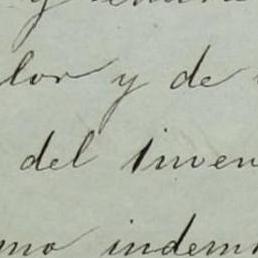 y
lor y de
del inven
mo indem